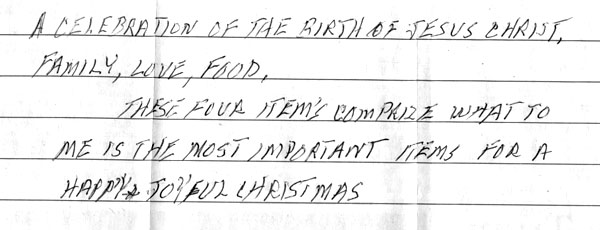 A CELEBRATION OF THE BIRTH OF JESUS CHRIST,
FAMILY, LOVE, FOOD,
THESE FOUR ITEM'S COMPRIZE WHAT TO
ME IS THE MOST IMPORTANT ITEMS FOR A
HAPPY & JOYFUL CHRISTMAS